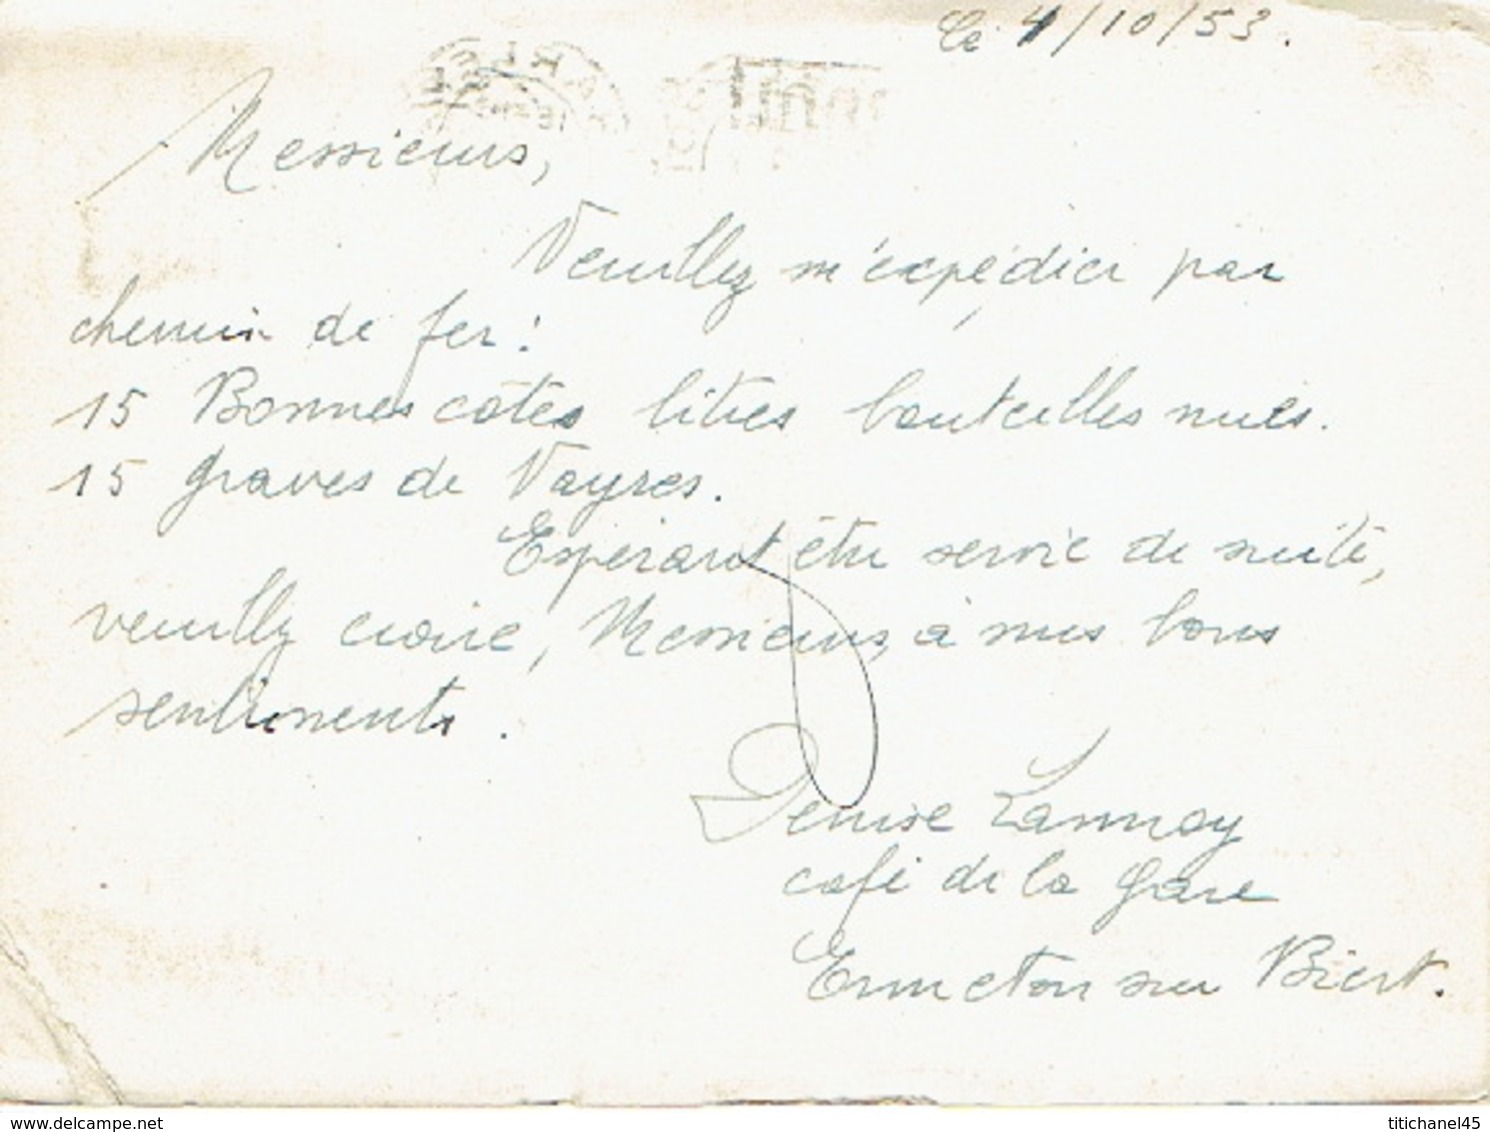 Le 4/10/53.
Messieurs,
Veuillez m'expédier par
chemin de fer :
15 Bonnes côtes litres bouteilles nues.
15 Graves de Vayres.
Espérant être servie de suite,
veuillez croire, Messieurs, à mes bons
sentiments.
Denise Lannoy
café de la Gare
Ermeton sur Biert.
www.delcampe.net
titichanel45